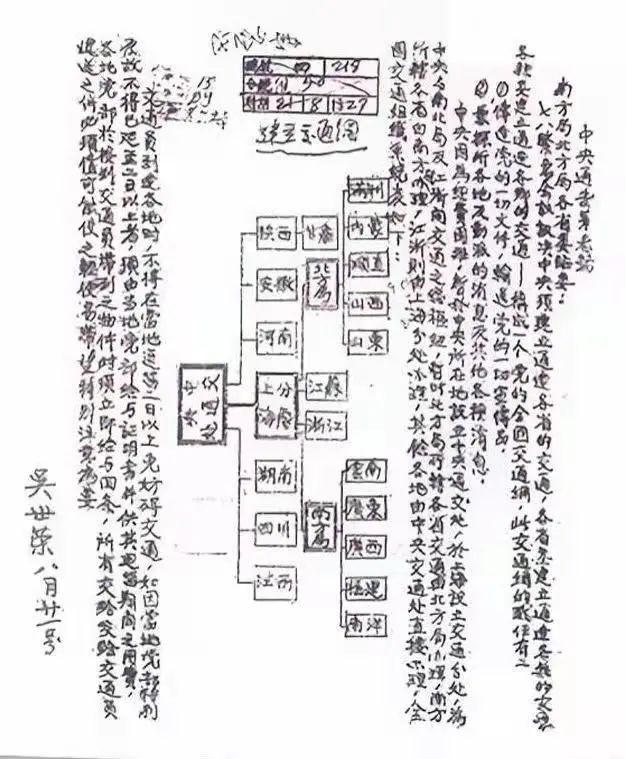 中央通告第叁號
南方局北方局各省委臨委:
中央須建立通達各省的交通,各省委建立通達各縣的交通
各縣委建立通達各鄉的交通——構成一個黨的全國交通網,此交通網的職任有二
①傳達黨的一切文件,輸送黨的一切宣傳品
②兼探聽各地反動派的消息及其他各種消息。
中央因為經費困難,暫就常委所在地設立中央交通處,於上海設立交通分處,為
中央與南北局及江浙間交通之總樞紐,暫時北方局所轄各省交通由北方局办理,南方
所轄各省由南方局办理,江浙則由上海分处办理,其餘各地由中央交通處直接办理,全
國交通組織系統表如下:
219
21 8 1927
交通網
中央交通处
陝西
甘肅
安徽
河南
上海分处
江蘇
浙江
湖南
四川
江西
北方局
滿洲
內蒙
直
山西
山東
南方局
雲南
廣東
廣西
福建
南洋
15
交通員到達各地時,不得在當地逗留二日以上免妨碍交通,如因當地党部特別
故不得已延至二日以上者,須由當地党部給与証明書並供其逗留期間之用費,
各地党部於接到交通員帶到之物件時須立即給与回条,所有交給交通員
遞送之件必須儘可能使之輕便易帶望特別注意為要
吳世榮八月廿一号